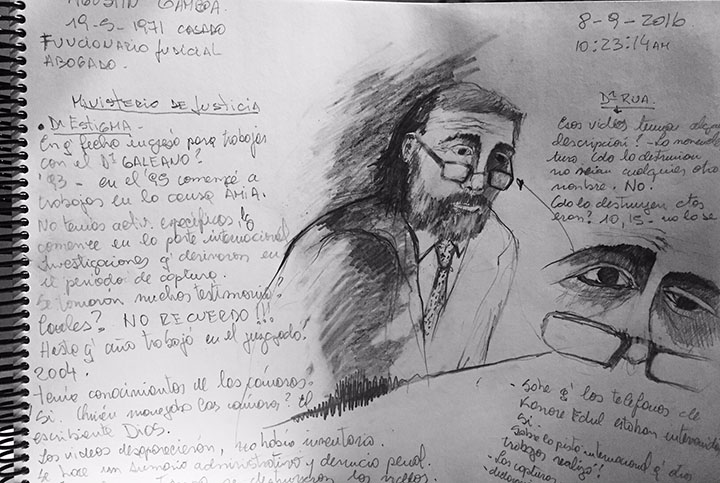 AGUSTIN GAMBOA.
19-5-1971 CASADO
FUNCIONARIO JUDICIAL
ABOGADO.
8-9-2016
10:23:14 AM
MINISTERIO DE JUSTICIA
• Dr ESTIGMA -
En q' fecha ingresó para trabajar
con el Dr GALEANO?
'93 - en el 95 comencé a
trabajar en la causa AMIA.
No tenía activ. específicas
comence en la parte internacional
Investigaciones q' derivaron en
el periodo de captura.
Se tomaron muchos testimonios?
Cuales? NO RECUERDO !!!
Hasta q' año trabajó en el juzgado?
2004.
Tenía conocimientos de las cámaras.
Si. Quién manejaba las cámaras? El
escribiente Dios.
Los videos desaparecieron, no había inventario.
Se hace un sumario administrativo y denuncia penal.
se destruyeron los videos.
Dr RUA.
Esos videos tenían alguna
descripción? - La nomencla
tura, cdo lo destruían
no seían cualquier otro
nombre. NO.
Cdo lo destruyen ctos
eran? 10, 15 - no lo se
- Sabe q' los teléfonos de
Kanoore Edul estaban intervenidos
Si.
Sobre la pista internacional q' otros
trabajos realizó?
- Las capturas